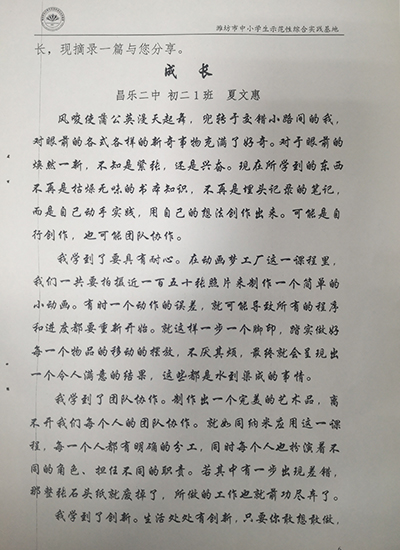 潍坊市中小学生示范性综合实践基地
长，现摘录一篇与您分享。
成 长
昌乐二中 初二1班 夏文惠
风唆使蒲公英漫天起舞，兜转于交错小路间的我，
对眼前的各式各样的新奇事物充满了好奇。对于眼前的
焕然一新，不知是紧张，还是兴奋。现在所学到的东西
不再是枯燥无味的书本知识，不再是埋头记录的笔记，
而是自己动手实践，用自己的想法创作出来。可能是自
行创作，也可能团队协作。
我学到了要具有耐心。在动画梦工厂这一课程里，
我们一共要拍摄近一百五十张照片来制作一个简单的
小动画。有时一个动作的误差，就可能导致所有的程序
和进度都要重新开始。就这样一步一个脚印，踏实做好
每一个物品的移动的摆放，不厌其烦，最终就会呈现出
一个令人满意的结果，这些都是水到渠成的事情。
我学到了团队协作。制作出一个完美的艺术品，离
不开我们每个人的团队协作。就如同纳米应用这一课
程，每一个人都有明确的分工，同时每个人也扮演着不
同的角色、担任不同的职责。若其中有一步出现差错，
那整张石头纸就废掉了，所做的工作也就前功尽弃了。
我学到了创新。生活处处有创新，只要你敢想敢做，